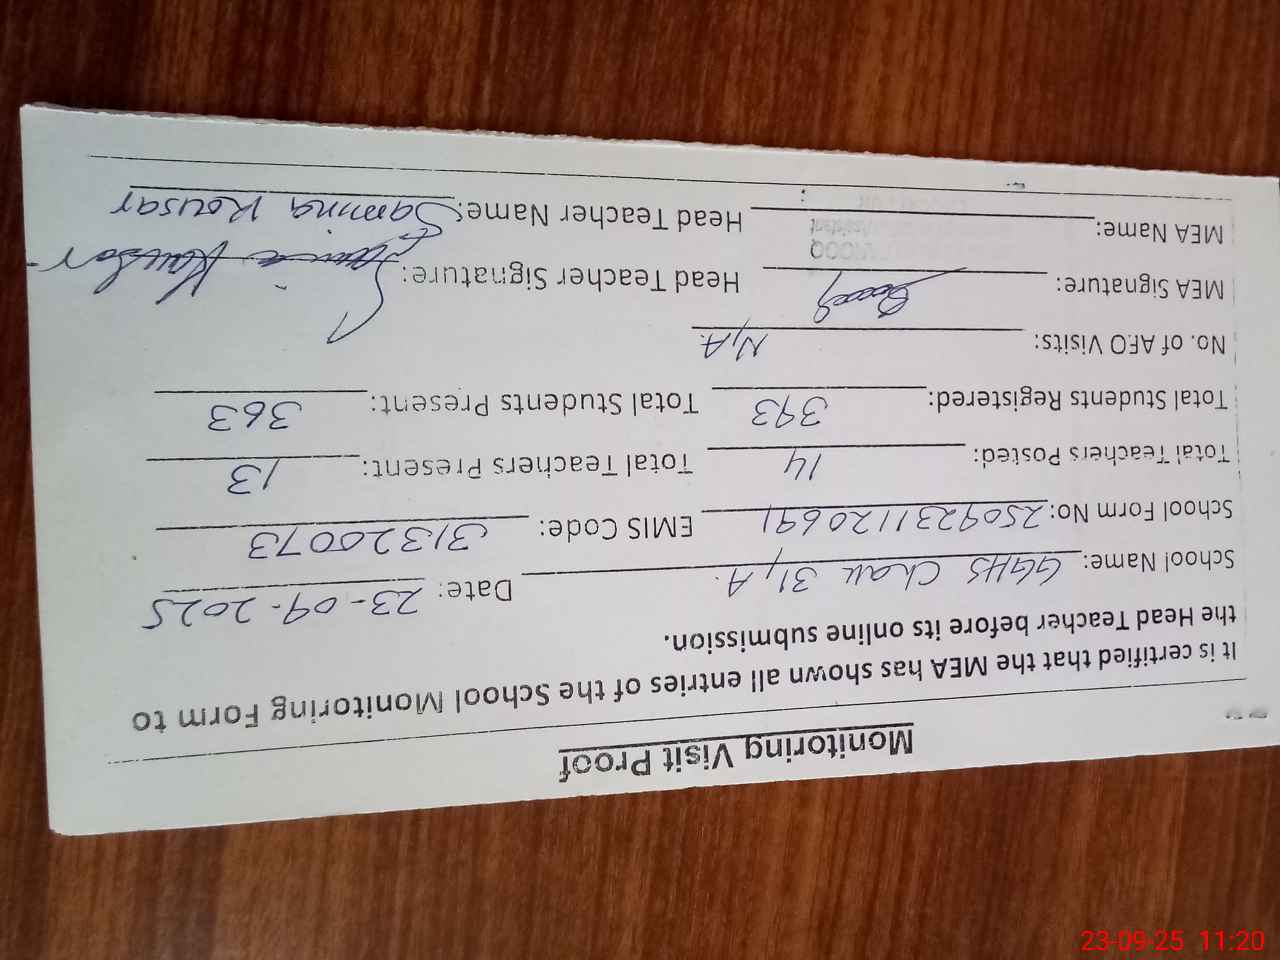 Monitoring Visit Proof
It is certified that the MEA has shown all entries of the School Monitoring Form to
the Head Teacher before its online submission.
School Name: GGHS Chak 31/A. Date: 23-09-2025
School Form No: 2509231120691 EMIS Code: 31320073
Total Teachers Posted: 14 Total Teachers Present: 13
Total Students Registered: 393 Total Students Present: 363
No. of AEO Visits: N/A.
MEA Signature: Head Teacher Signature: Samina Kausar
MEA Name: Head Teacher Name: Samina Kousar
23-09-25 11:20